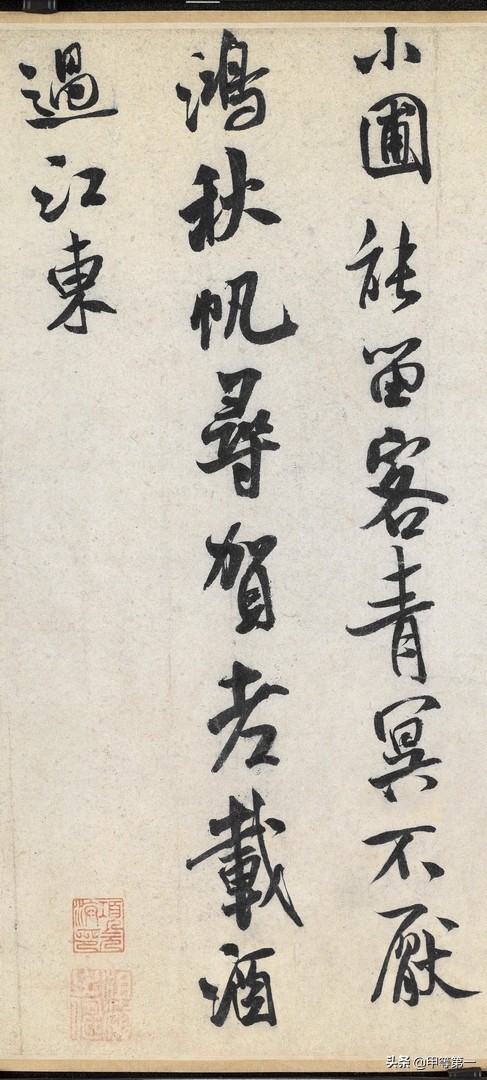 小圃能留客青冥不厭
鴻秋帆尋賀老載酒
過江東
头条 @甲等第一